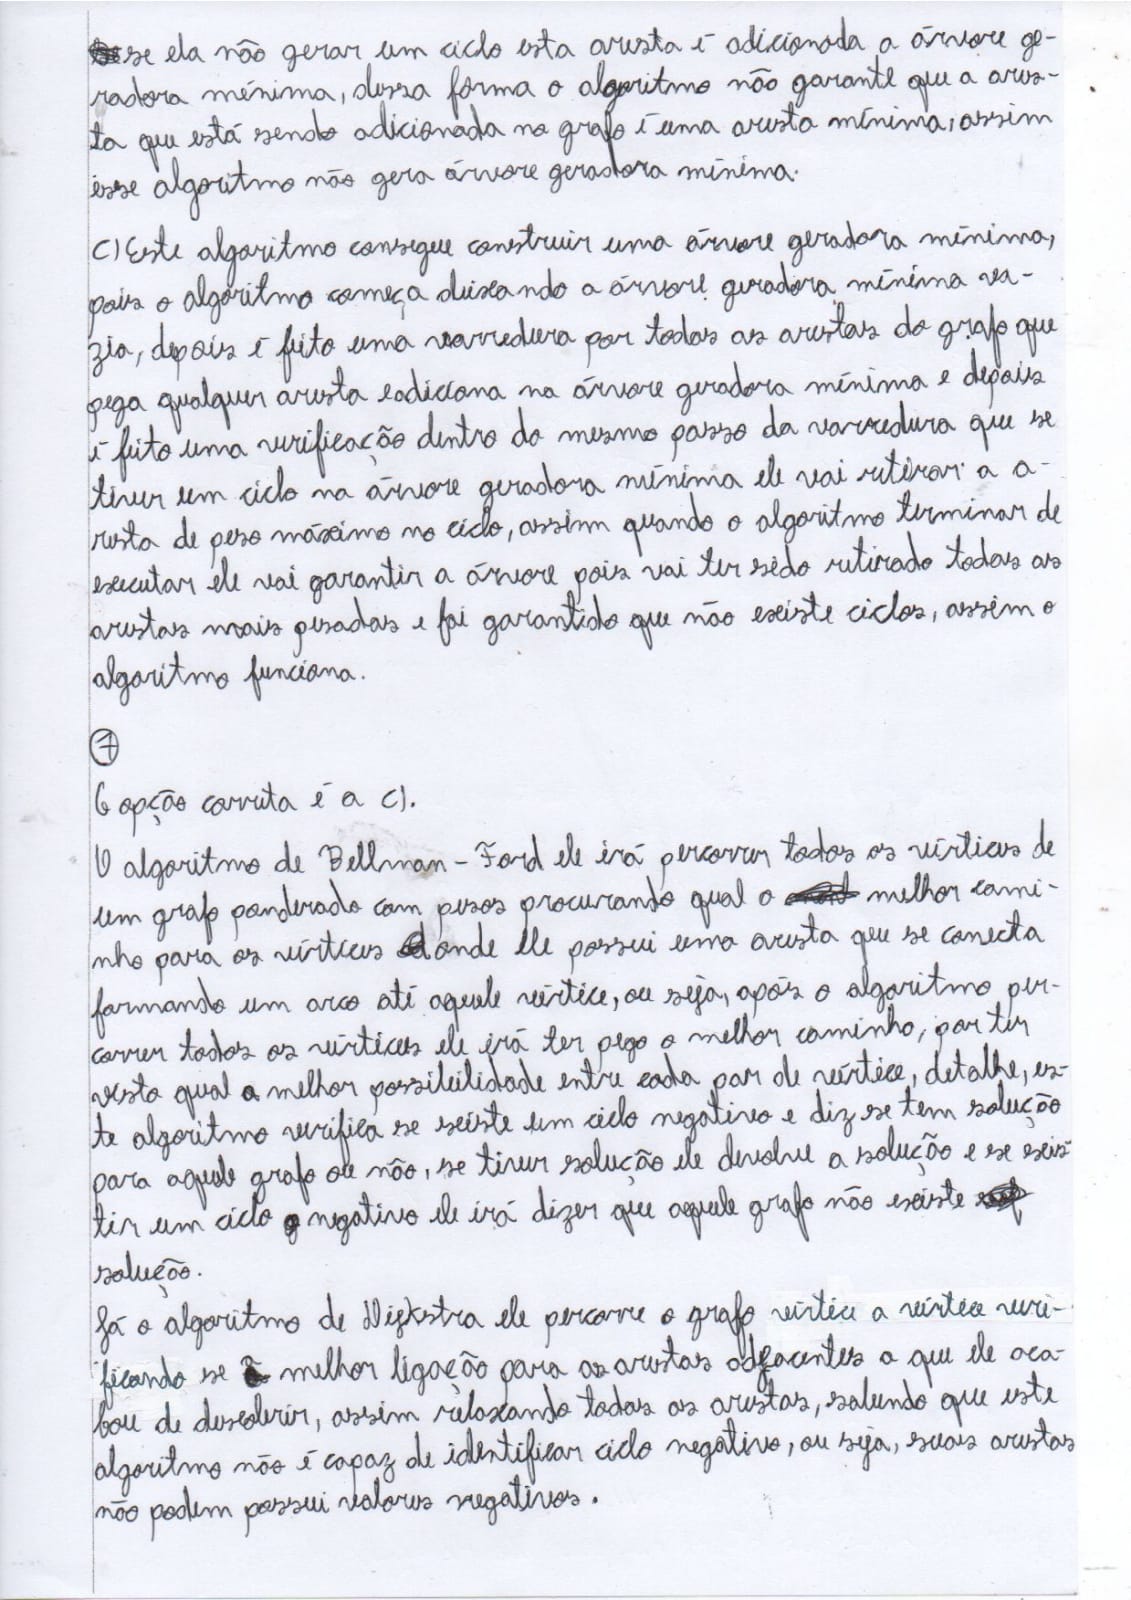 se ela não gerar um ciclo esta aresta é adicionada a árvore ge-
radora mínima, dessa forma o algoritmo não garante que a ares-
ta que está sendo adicionada no grafo é uma aresta mínima, assim
esse algoritmo não gera árvore geradora mínima.
C) Este algoritmo consegue construir uma árvore geradora mínima,
pois o algoritmo começa deixando a árvore geradora mínima va-
zia, depois é feito uma varredura por todas as arestas do grafo que
pega qualquer aresta e adiciona na árvore geradora mínima e depois
é feito uma verificação dentro do mesmo passo da varredura que se
tiver um ciclo na árvore geradora mínima ele vai retirar a a-
resta de peso máximo no ciclo, assim quando o algoritmo terminar de
executar ele vai garantir a árvore pois vai ter sido retirado todas as
arestas mais pesadas e foi garantido que não existe ciclos, assim o
algoritmo funciona.
7
A opção correta é a C).
O algoritmo de Bellman-Ford ele irá percorrer todos os vértices de
um grafo ponderado com pesos procurando qual o melhor cami-
nho para os vértices onde ele possui uma aresta que se conecta
formando um arco até aquele vértice, ou seja, após o algoritmo per-
correr todos os vértices ele irá ter pego o melhor caminho, por ter
visto qual a melhor possibilidade entre cada par de vértice, detalhe, es-
te algoritmo verifica se existe um ciclo negativo e diz se tem solução
para aquele grafo ou não, se tiver solução ele devolve a solução e se exis-
tir um ciclo negativo ele irá dizer que aquele grafo não existe
solução.
Já o algoritmo de Dijkstra ele percorre o grafo vértice a vértice veri-
ficando se a melhor ligação para as arestas adjacentes a que ele aca-
bou de descobrir, assim relaxando todas as arestas, sabendo que este
algoritmo não é capaz de identificar ciclo negativo, ou seja, suas arestas
não podem possui valores negativos.